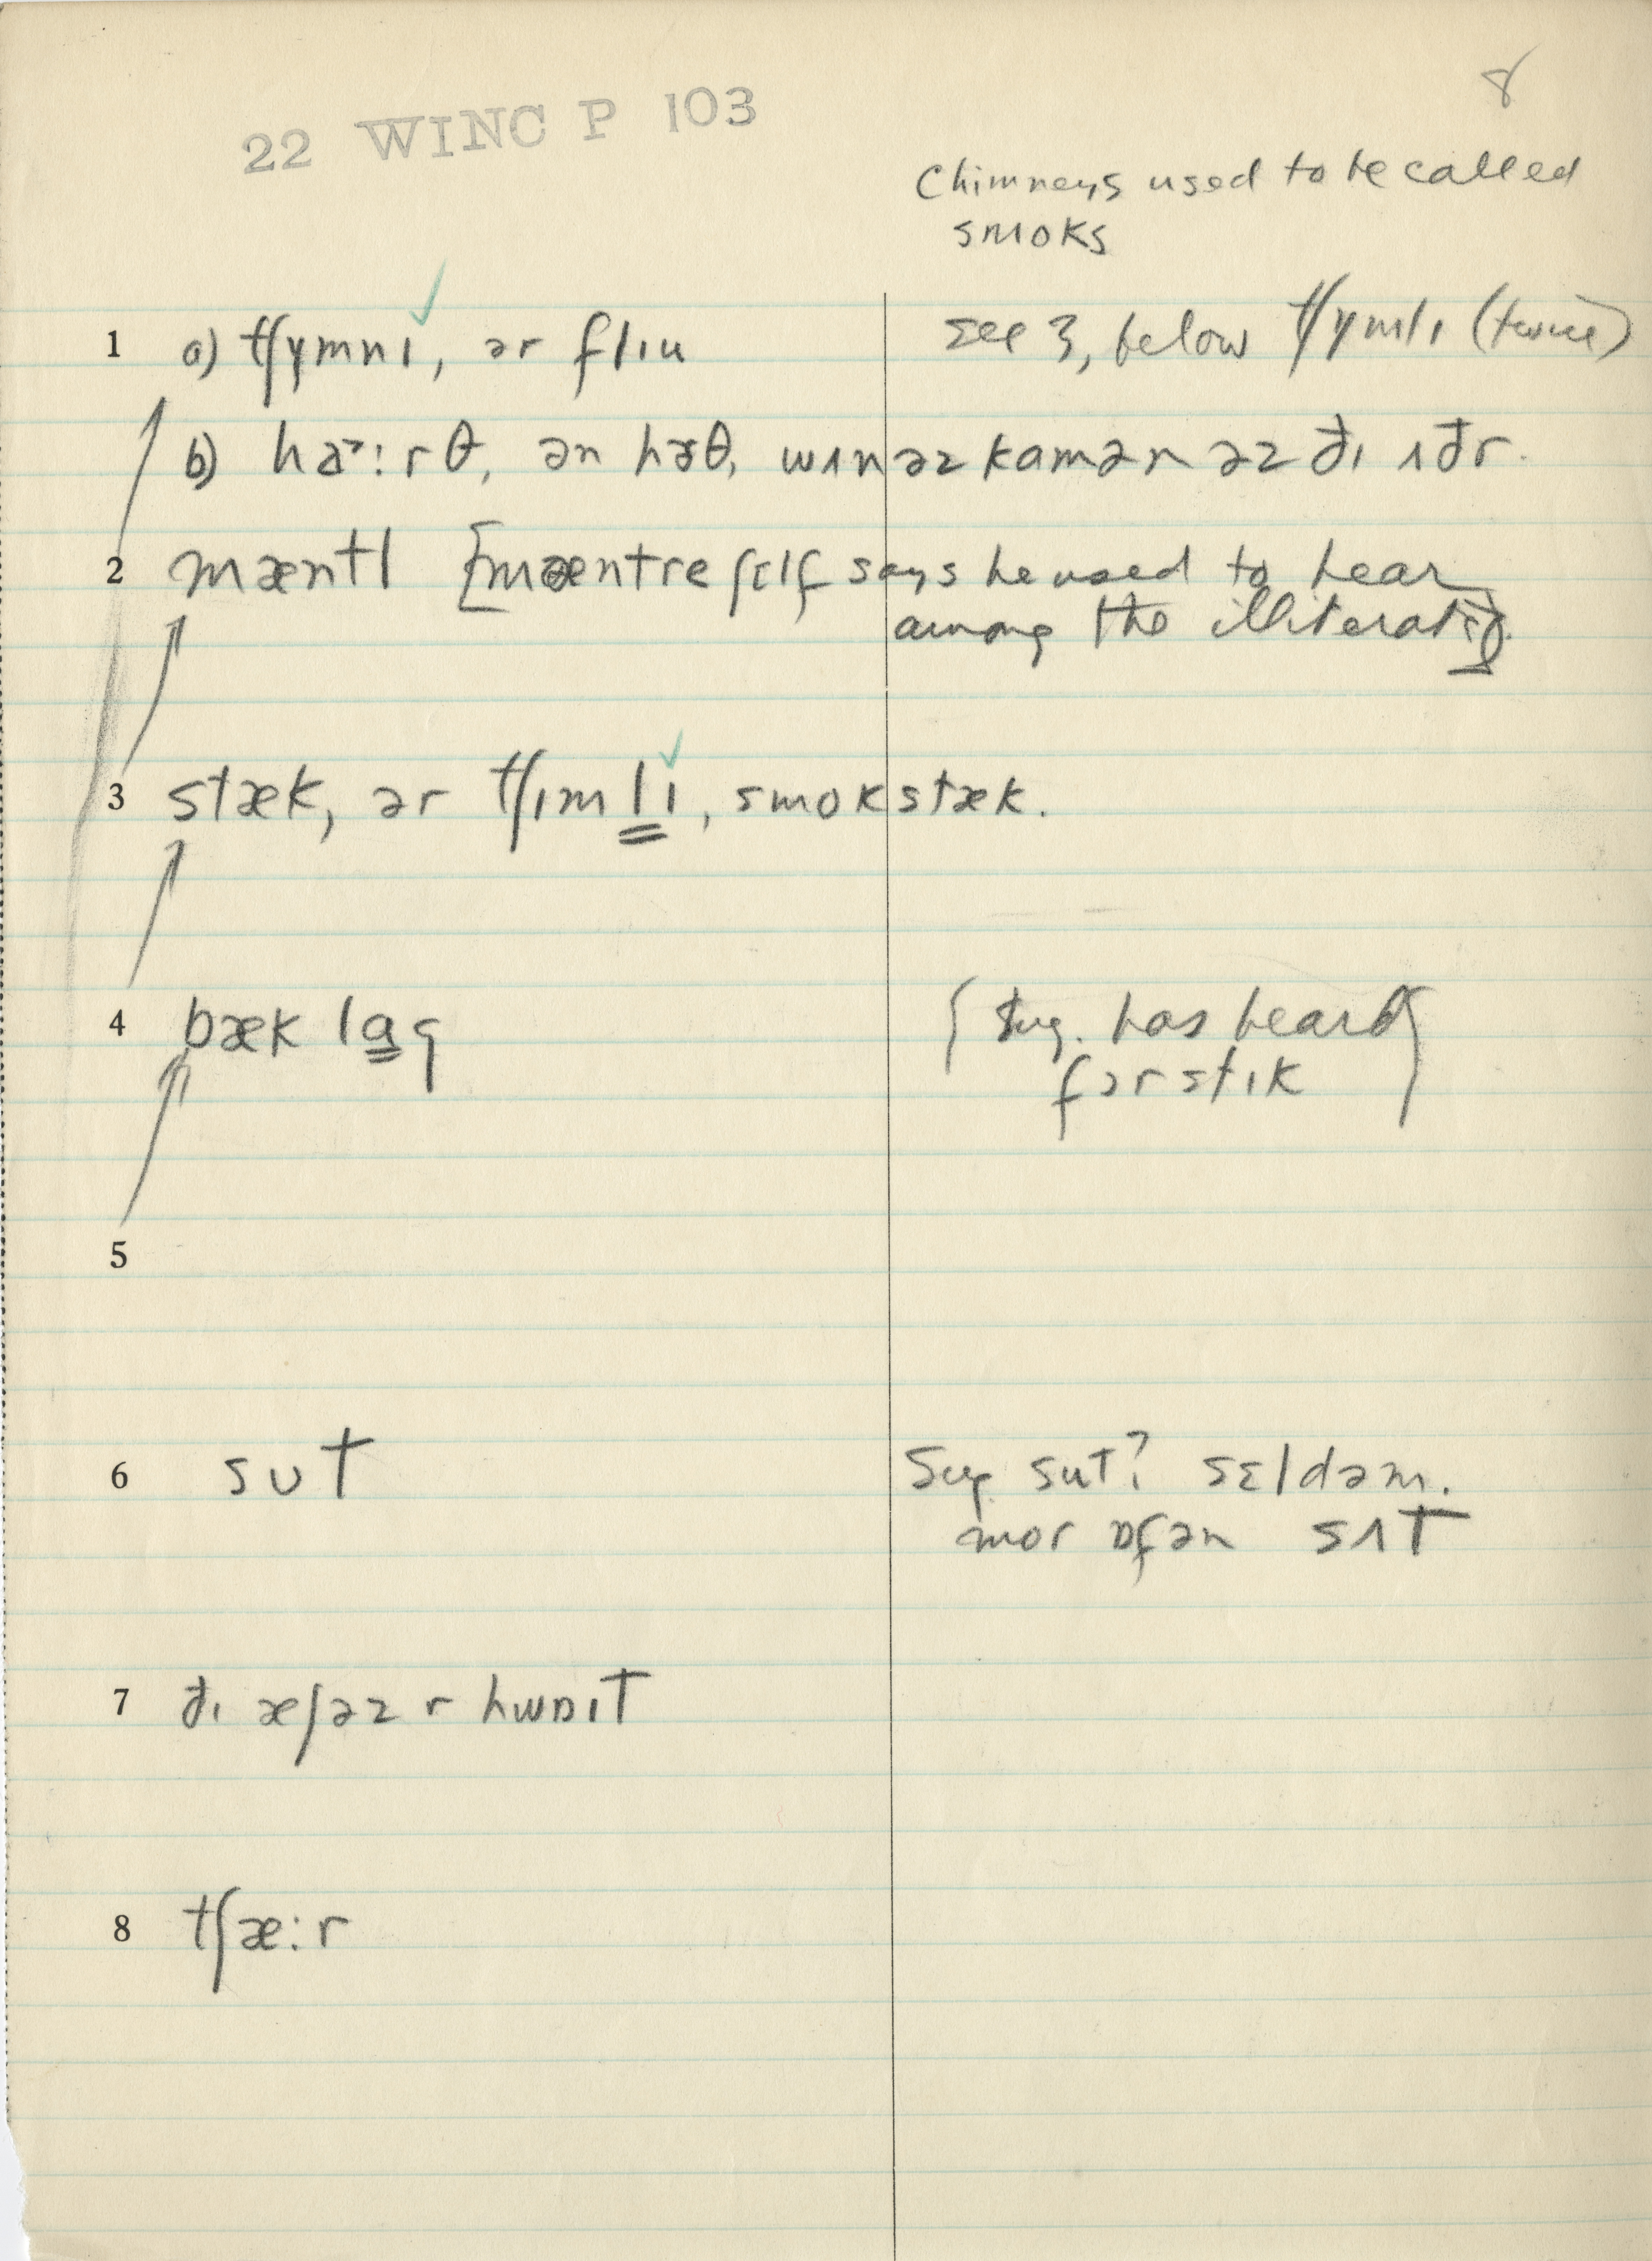 8
22 WINC P 103
Chimneys used to be called
smoks
1 a) tʃʏmnɪ, ər flɪu see 3, below tʃʏmlɪ (twice)
b) haː:rθ, ən hɝθ, wʌn əz kamən əz ðɪ ʌðr.
2 mæntl [mæntre ʃɛlf says he used to hear
among the illiterate].
3 stæk, ər tʃɪmlɪ, smokstæk.
4 bæk lɑg { Sug. has heard
fɔrstɪk }
5
6 sʊt Sug. sut? sɛldəm.
mor ɒfən sʌt
7 ðɪ æʃəz r hwɒɪt
8 tʃæ:r